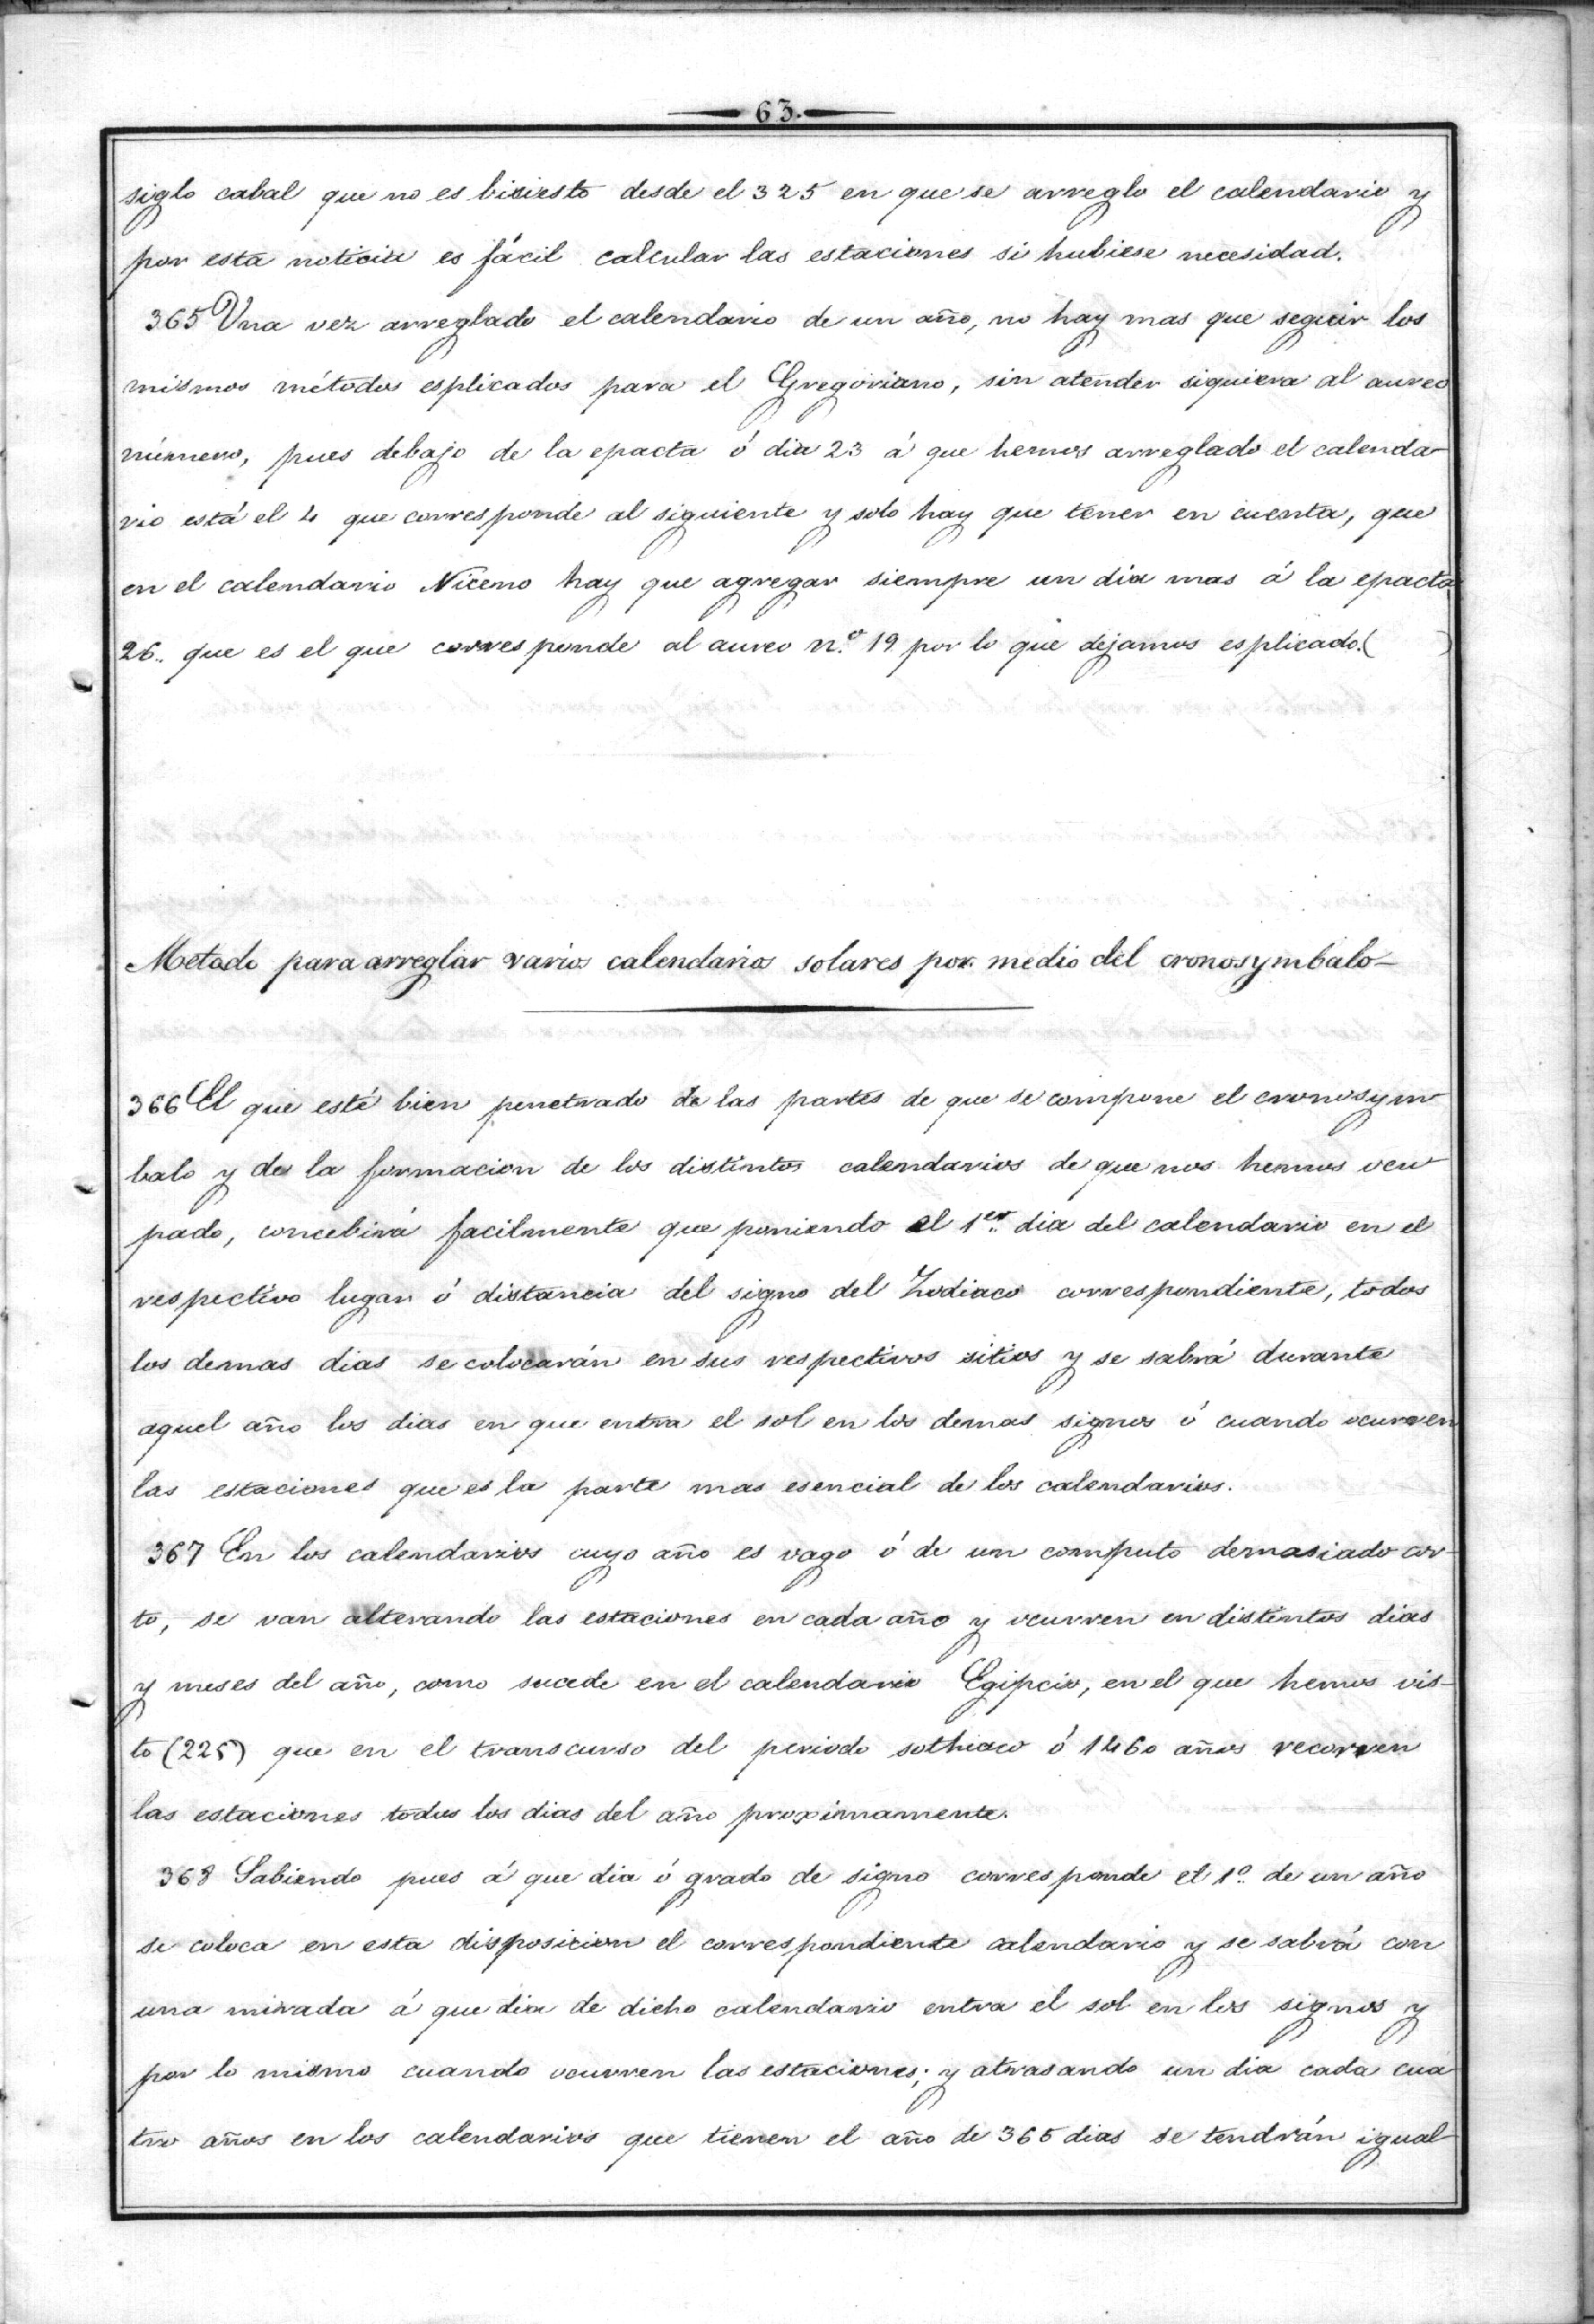 63.
siglo cabal que no es bisiesto desde el 325 en que se arreglo el calendario y
por esta noticia es fácil calcular las estaciones si hubiese necesidad.
365 Una vez arreglado el calendario de un año, no hay mas que seguir los
mismos métodos esplicados para el Gregoriano, sin atender siquiera al aureo
número, pues debajo de la epacta ó dia 23 á que hemos arreglado el calenda-
rio está el 4 que corresponde al siguiente y solo hay que tener en cuenta, que
en el calendario Niceno hay que agregar siempre un dia mas á la epacta
26.. que es el que corresponde al aureo n.º 19 por lo que dejamos esplicado. ( )
Metodo para arreglar varios calendarios solares por medio del cronosymbalo-
366 El que esté bien penetrado de las partes de que se compone el cronosym-
balo y de la formacion de los distintos calendarios de que nos hemos ocu-
pado, concebirá facilmente que poniendo el 1er. dia del calendario en el
respectivo lugar ó distancia del signo del Zodiaco correspondiente, todos
los demas dias se colocarán en sus respectivos sitios y se sabrá durante
aquel año los dias en que entra el sol en los demas signos ó cuando ocurren
las estaciones que es la parte mas esencial de los calendarios.
367 En los calendarios cuyo año es vago ó de un computo demasiado cor-
to, se van alterando las estaciones en cada año y ocurren en distintos dias
y meses del año, como sucede en el calendario Egipcio, en el que hemos vis-
to (225) que en el transcurso del periodo sothiaco ó 1460 años recorren
las estaciones todos los dias del año proximamente.
368 Sabiendo pues á que dia ó grado de signo corresponde el 1º. de un año
se coloca en esta disposicion el correspondiente calendario y se sabrá con
una mirada á que dia de dicho calendario entra el sol en los signos y
por lo mismo cuando ocurren las estaciones; y atrasando un dia cada cua-
tro años en los calendarios que tienen el año de 365 dias se tendrán igual-